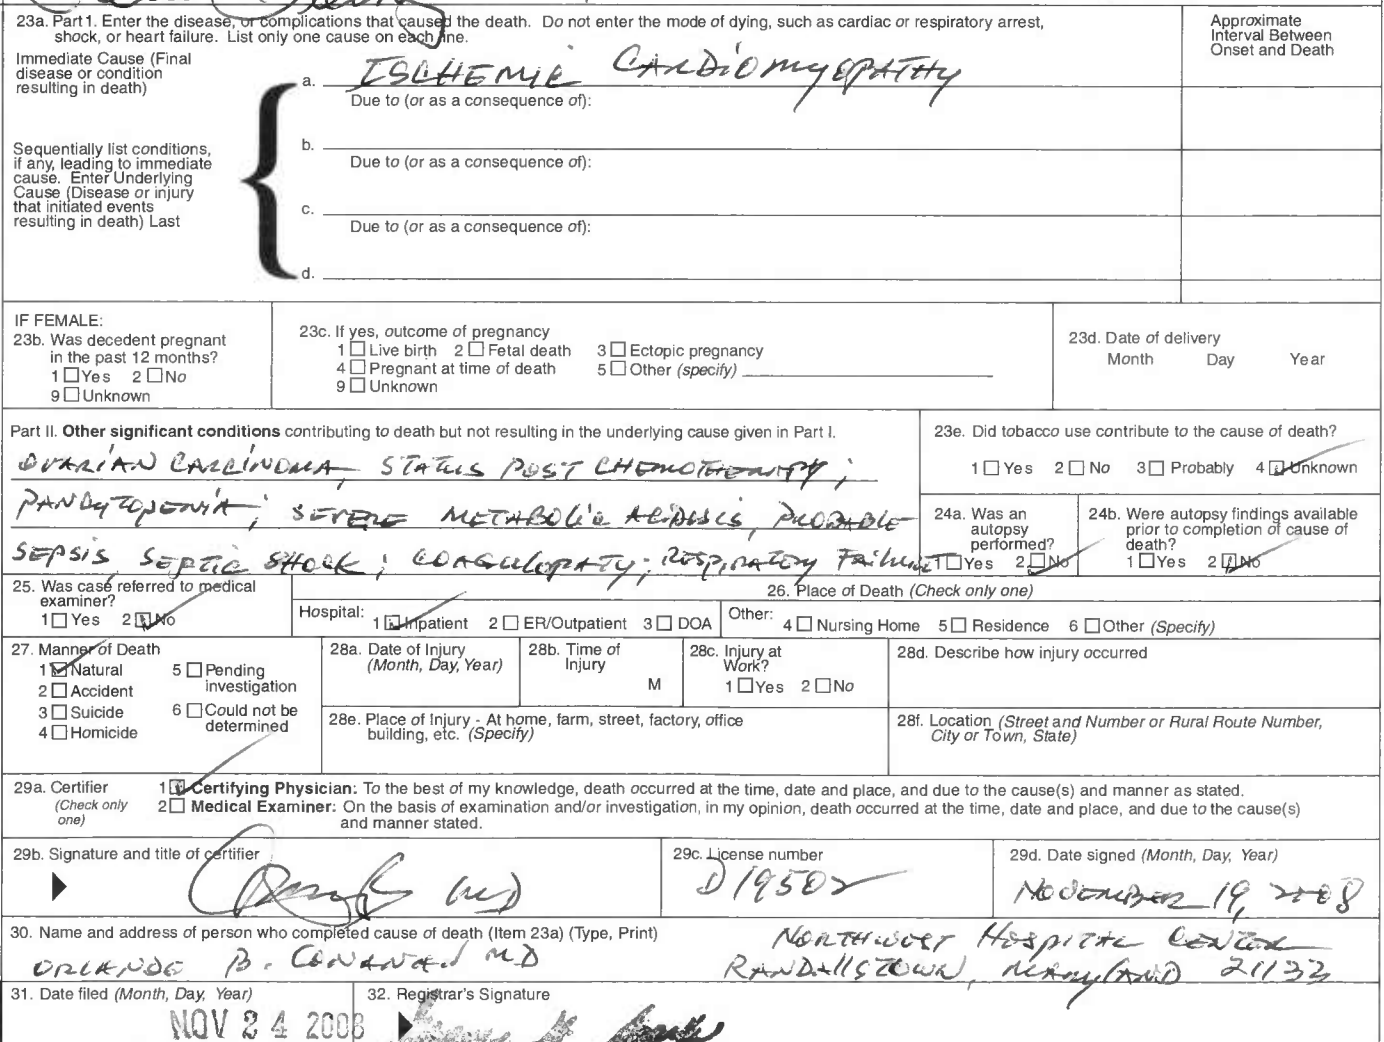 23a. Part1. Enter the disease, or complications that caused the death. Do not enter the mode of dying, such as cardiac or respiratory arrest,
shock, or heart failure. List only one cause on each line.
Approximate
Interval Between
Onset and Death
Immediate Cause (Final
disease or condition
resulting in death)
a. ISCHEMIC CARDIOMYOPATHY
Due to (or as a consequence of):
Sequentially list conditions,
if any, leading to immediate
cause. Enter Underlying
Cause (Disease or injury
that initiated events
resulting in death) Last
b.
Due to (or as a consequence of):
c.
Due to (or as a consequence of):
d.
IF FEMALE:
23b. Was decedent pregnant
in the past 12 months?
1 Yes 2 No
9 Unknown
23c. If yes, outcome of pregnancy
1 Live birth 2 Fetal death 3 Ectopic pregnancy
4 Pregnant at time of death 5 Other (specify)
9 Unknown
23d. Date of delivery
Month Day Year
Part II. Other significant conditions contributing to death but not resulting in the underlying cause given in Part I.
OVARIAN CARCINOMA, STATUS POST CHEMOTHERAPY;
PANCYTOPENIA; SEVERE METABOLIC ACIDOSIS, PROBABLE
SEPSIS, SEPTIC SHOCK; COAGULOPATY; RESPIRATORY FAILURE
23e. Did tobacco use contribute to the cause of death?
1 Yes 2 No 3 Probably 4 Unknown
24a. Was an
autopsy
performed?
1 Yes 2 No
24b. Were autopsy findings available
prior to completion of cause of
death?
1 Yes 2 No
25. Was case referred to medical
examiner?
1 Yes 2 No
26. Place of Death (Check only one)
Hospital: 1 Inpatient 2 ER/Outpatient 3 DOA Other: 4 Nursing Home 5 Residence 6 Other (Specify)
27. Manner of Death
1 Natural 5 Pending
investigation
2 Accident
3 Suicide 6 Could not be
determined
4 Homicide
28a. Date of Injury
(Month, Day, Year)
28b. Time of
Injury
M
28c. Injury at
Work?
1 Yes 2 No
28d. Describe how injury occurred
28e. Place of Injury - At home, farm, street, factory, office
building, etc. (Specify)
28f. Location (Street and Number or Rural Route Number,
City or Town, State)
29a. Certifier
(Check only
one)
1 Certifying Physician: To the best of my knowledge, death occurred at the time, date and place, and due to the cause(s) and manner as stated.
2 Medical Examiner: On the basis of examination and/or investigation, in my opinion, death occurred at the time, date and place, and due to the cause(s)
and manner stated.
29b. Signature and title of certifier
MD
29c. License number
D19502
29d. Date signed (Month, Day, Year)
NOVEMBER 19, 2008
30. Name and address of person who completed cause of death (Item 23a) (Type, Print)
ORLANDO B. CONANAN MD
NORTHWEST HOSPITAL CENTER
RANDALLSTOWN, MARYLAND 21133
31. Date filed (Month, Day, Year)
NOV 24 2008
32. Registrar's Signature